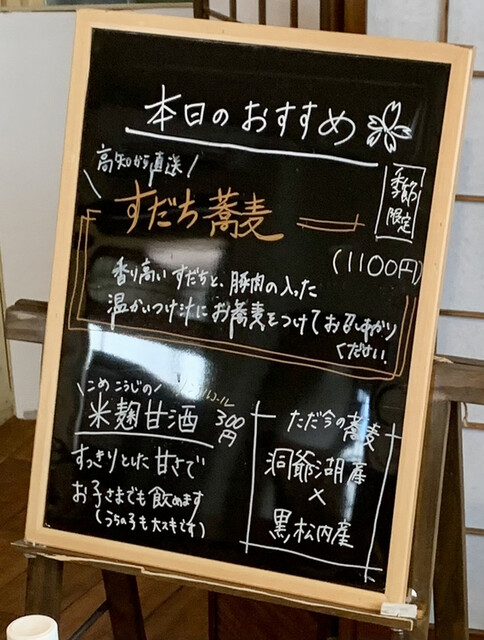 本日のおすすめ
高知から直送
季節
限定
すだち蕎麦
(1100円)
香り高いすだちと、豚肉の入った
温かいつけ汁にお蕎麦をつけてお召しあがり
ください。
こめこうじの
ノンアルコール
米麹甘酒 300円
すっきりとした甘さで
お子さまでも飲めます
(うちの子も大スキです)
ただ今の蕎麦
洞爺湖産
×
黒松内産